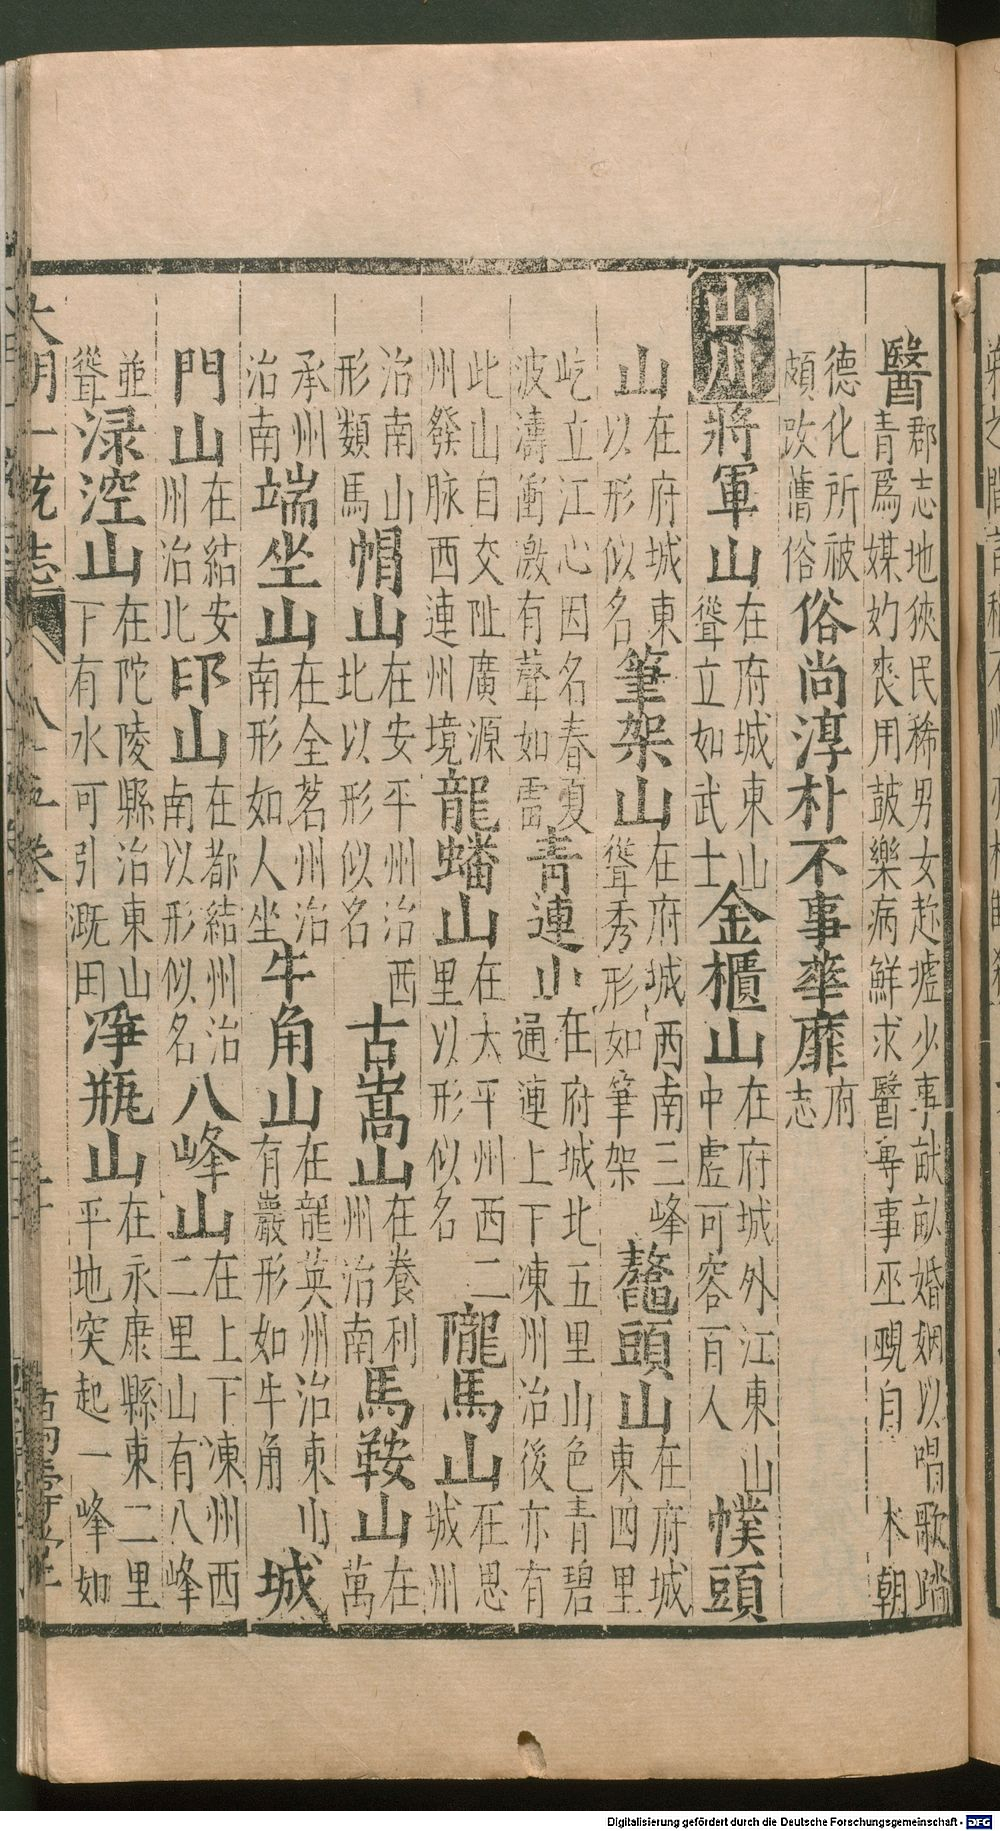 醫郡志地狹民稀男女赴墟少事畎畝婚姻以唱歌踏
青爲媒妁喪用鼓樂病鮮求醫專事巫覡自 本朝
德化所被
頗改舊俗俗尚淳朴不事華靡府
志
山川將軍山在府城東山
聳立如武士金櫃山在府城外江東山
中虛可容百人幞頭
山在府城東
以形似名筆架山在府城西南三峰
聳秀形如筆架鼇頭山在府城
東四里
屹立江心因名春夏
波濤衝激有聲如雷青連山在府城北五里山色青碧
通連上下凍州治後亦有
此山自交阯廣源
州發脉西連州境龍蟠山在太平州西二
里以形似名隴馬山在思
城州
治南山
形類馬帽山在安平州治西
北以形似名古嵩山在養利
州治南馬鞍山在
萬
承州
治南端坐山在全茗州治
南形如人坐牛角山在龍英州治東山
有巖形如牛角城
門山在結安
州治北印山在都結州治
南以形似名八峰山在上下凍州西
二里山有八峰
並
聳渌涳山在陀陵縣治東山
下有水可引溉田淨瓶山在永康縣東二里
平地突起一峰如
一統志 八十五卷
萬壽堂
Digitalisierung gefördert durch die Deutsche Forschungsgemeinschaft - DFG